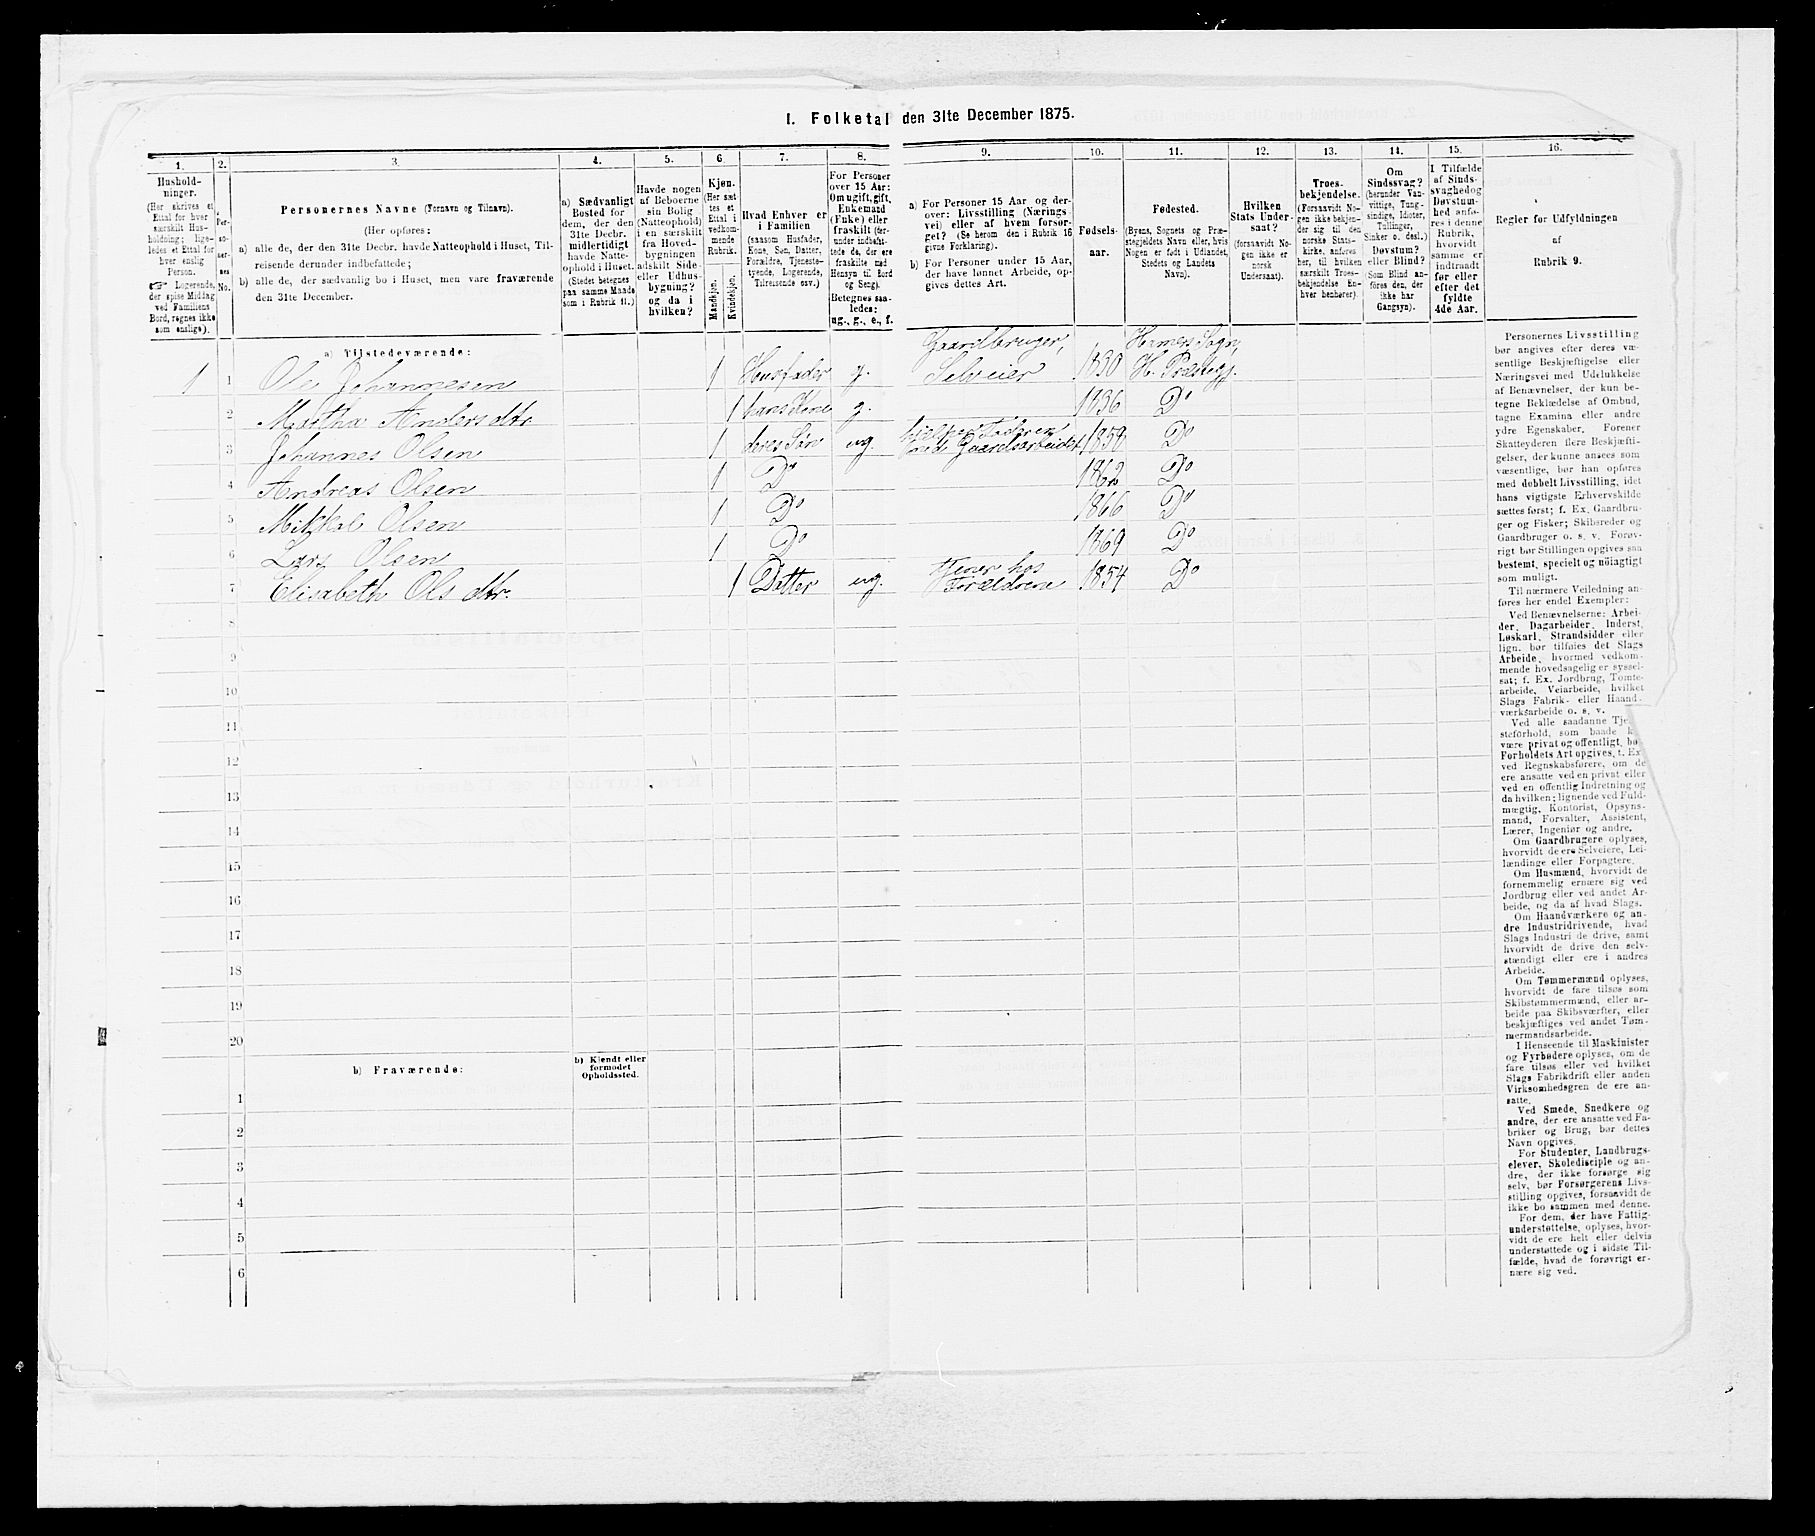 I. Folketal den 31te December 1875.
1. 2. 3. 4. 5. 6. 7. 8. 9. 10. 11. 12. 13. 14. 15. 16.
Hushold-
ninger.
(Her skrives et
Ettal for hver
særskilt Hus-
holdning; lige-
ledes et Ettal for
hver enslig
Person.
☞ Logerende,
der spise Middag
ved Familiens
Bord, regnes ikke
som enslige).
Per-
so-
ner-
nes
No.
Personernes Navne (Fornavn og Tilnavn).
(Her opføres:
a) alle de, der den 31te Decbr. havde Natteophold i Huset, Til-
reisende derunder indbefattede;
b) alle de, der sædvanlig bo i Huset, men vare fraværende
den 31te December.
a) Sædvanligt
Bosted for
dem, der den
31te Decbr.
midlertidigt
havde Natte-
ophold i Huset.
(Stedet betegnes
paa samme Maade
som i Rubrik 11.)
Havde nogen
af Beboerne
sin Bolig
(Natteophold)
i en særskilt
fra Hoved-
bygningen
adskilt Side-
eller Udhus-
bygning?
og da i
hvilken?
Kjøn.
(Her sæt-
tes et
Ettal i
vedkom-
mende
Rubrik.
Mandkjøn.
Kvindekjøn.
Hvad Enhver er
i Familien
(saasom Husfader,
Kone, Søn, Datter,
Forældre, Tjeneste-
tyende, Logerende,
Tilreisende osv.)
For Personer
over 15 Aar:
Om ugift, gift,
Enkemand
(Enke) eller
fraskilt (her-
under indbefat-
tede de, der ere
fraskilte med
Hensyn til Bord
og Seng).
Betegnes saa-
ledes:
ug., g., e., f.
a) For Personer 15 Aar og der-
over: Livsstilling (Nærings-
vei) eller af hvem forsør-
get? (Se herom den i Rubrik 16
givne Forklaring).
b) For Personer under 15 Aar,
der have lønnet Arbeide, op-
gives dettes Art.
Fødsels-
aar.
Fødested.
(Byens, Sognets og Præ-
stegjeldets Navn eller, hvis
Nogen er født i Udlandet,
Stedets og Landets
Navn).
Hvilken
Stats Under-
saat?
(forsaavidt No-
gen ikke er
norsk
Undersaat).
Troes-
bekjendelse.
(Forsaavidt No-
gen ikke bekjen-
der sig til den
norske Stats-
kirke, anføres
her, til hvilken
særskilt Troes-
bekjendelse En-
hver henhører).
Om
Sindssvag?
(herunder Van-
vittige, Tung-
sindige, Idioter,
Tullinger,
Sinker o. desl.)
eller Blind?
Døvstum?
(Som Blind an-
føres den, der
ikke har
Gangsyn).
I Tilfælde
af Sinds-
svaghed og
Døvstum-
hed anfø-
res i denne
Rubrik,
hvorvidt
samme er
indtraadt
før eller
efter det
fyldte
4de Aar.
Regler for Udfyldningen
af
Rubrik 9.
a) Tilstedeværende:
1 1 Ole Johannesen 1 Husfader g. Gaardbruger, Selveier 1830 Hemnes Sogn, H. Præstegj.
2 Martha Andersdtr 1 hans Kone g. 1836 Do
3 Johannes Olsen 1 deres Søn ug. hjelper Faderen med Gaardsarbeidet 1859 Do
4 Andreas Olsen 1 Do 1862 Do
5 Mikkal Olsen 1 Do 1866 Do
6 Lars Olsen 1 Do 1869 Do
7 Elisabeth Ols dtr. 1 Datter ug. Tjener hos Forældrene 1854 Do
8
9
10
11
12
13
14
15
16
17
18
19
20
b) Fraværende:
b) Kjendt eller
formodet
Opholdssted.
1
2
3
4
5
6
Personernes Livsstilling
bør angives efter deres væ-
sentlige Beskjæftigelse eller
Næringsvei med Udelukkelse
af Benævnelser, der kun be-
tegne Beklædelse af Ombud,
tagne Examina eller andre
ydre Egenskaber. Forener
Skatteyderen flere Beskjæfti-
gelser, der kunne ansees som
væsentlige, bør han opføres
med dobbelt Livsstilling, idet
hans vigtigste Erhvervskilde
sættes først; f. Ex. Gaardbru-
ger og Fisker; Skibsreder og
Gaardbruger o. s. v. Forøv-
rigt bør Stillingen opgives saa
bestemt, specielt og nøiagtigt
som muligt.
Til nærmere Veiledning an-
føres her endel Exempler:
Ved Benævnelserne: Arbei-
der, Dagarbeider, Inderst,
Løskarl, Strandsidder eller
lign. bør tilføies det Slags
Arbeide, hvormed vedkom-
mende hovedsagelig er syssel-
sat; f. Ex. Jordbrug, Tomte-
arbeide, Veiarbeide, hvilket
Slags Fabrik- eller Haand-
værksarbeide o. s. v.
Ved alle saadanne Tje-
steforhold, som baade k
være privat og offentligt, bø
Forholdets Art opgives, t. Ex.
ved Regnskabsførere, om de
ere ansatte ved en privat eller
ved en offentlig Indretning og
da hvilken; lignende ved Fuld-
mægtig, Kontorist, Opsyns-
mand, Forvalter, Assistent,
Lærer, Ingeniør og andre.
Om Gaardbrugere oplyses,
hvorvidt de ere Selveiere, Lei-
lændinge eller Forpagtere.
Om Husmænd, hvorvidt de
fornemmelig ernære sig ved
Jordbrug eller ved andet Ar-
beide, og da af hvad Slags.
Om Haandværkere og an-
dre Industridrivende, hvad
Slags Industri de drive, samt
hvorvidt de drive den selv-
stændigt eller ere i andres
Arbeide.
Om Tømmermænd oplyses,
hvorvidt de fare tilsøs som
Skibstømmermænd, eller ar-
beide paa Skibsværfter, eller
beskjæftiges ved andet Tøm-
mermandsarbeide.
I Henseende til Maskinister
og Fyrbødere oplyses, om de
fare tilsøs eller ved hvilket
Slags Fabrikdrift eller anden
Virksomhedsgren de ere an-
satte.
Ved Smede, Snedkere og
andre, der ere ansatte ved Fa-
briker og Brug, bør dettes
Navn opgives.
For Studenter, Landbrugs-
elever, Skoledisciple og an-
dre, der ikke forsørge sig
selv, bør Forsørgerens Livs-
stilling opgives, forsaavidt de
ikke bo sammen med denne.
For dem, der have Fattig-
understøttelse, oplyses, hvor-
vidt de ere helt eller delvis
understøttede og i sidste Til-
fælde, hvad de forøvrigt er-
nære sig ved.